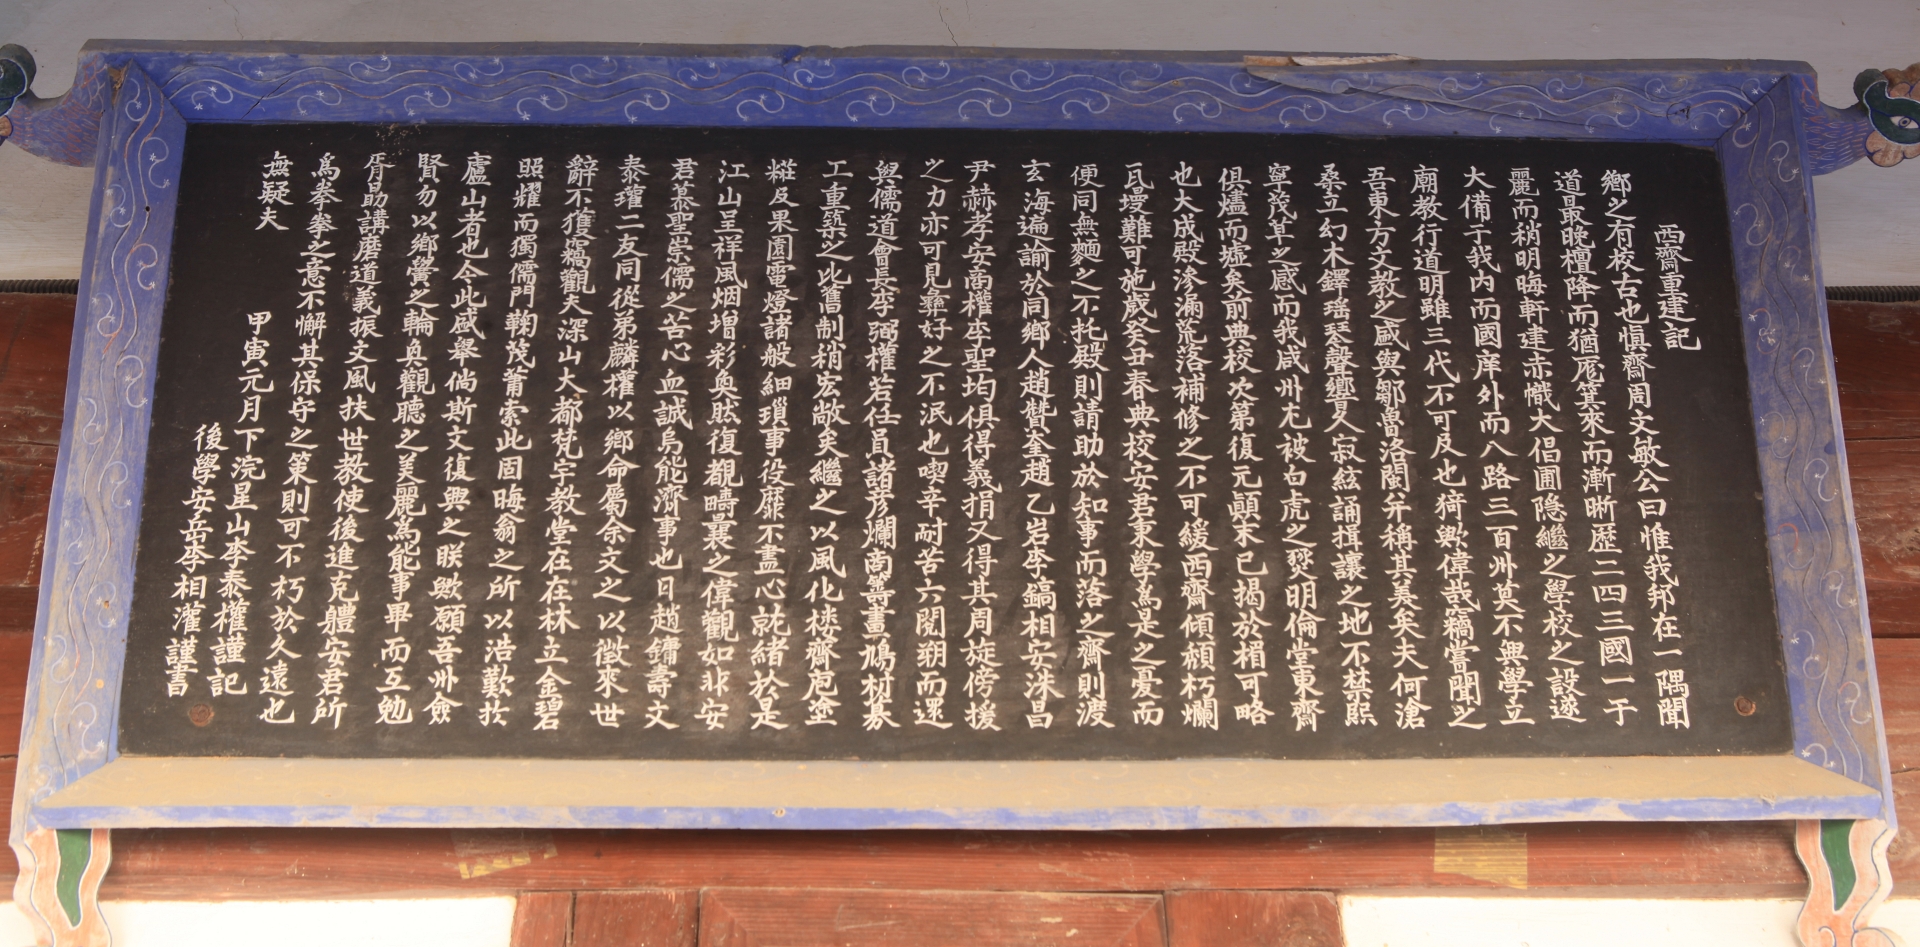 西齋重建記
鄕之有校古也愼齋周文敏公曰惟我邦在一隅聞
道最晩檀降而猶厖箕來而漸晰歷二四三國一于
麗而稍明晦軒建赤幟大倡圃隐繼之學校之設遂
大備于我内而國庠外而八路三百州莫不興學立
廟教行道明雖三代不可及也猗歟偉哉竊嘗聞之
吾東方文教之盛與鄒魯洛閩并稱其美矣夫何滄
桑立幻木鐸瑶琴聲響久寂絃誦揖讓之地不禁熙
寧茂草之感而我咸州尤被白虎之燹明倫堂東齋
俱燼而墟矣前典校次第復元顚末已揭於楣可略
也大成殿渗漏荒落補修之不可緩西齋傾頹朽爛
瓦墁難可施歲癸丑春典校安君東學爲是之憂而
便同無麵之不托殿則請助於知事而落之齋則渡
玄海遍諭於同鄕人趙贊奎趙乙岩李鎬相安洙昌
尹赫孝安商權李聖均俱得義捐又得其周旋傍援
之力亦可見彝好之不泯也喫辛耐苦六閱朔而還
與儒道會長李弼權若任員諸彦爛商籌畫鳩材募
工重築之比舊制稍宏敞矣繼之以風化楼齋庖塗
糚及果園電燈諸般細瑣事役靡不盡心就緒於是
江山呈祥風烟增彩奐然復覩疇曩之偉觀如非安
君慕聖崇儒之苦心血誠烏能濟事也日趙鏞壽文
泰瓘二友同從弟麟權以鄕命屬余文之以徵來世
辭不獲竊觀夫深山大都梵宇教堂在在林立金碧
照耀而獨儒門鞠茂莆索此固晦翁之所以浩歎於
廬山者也今此盛舉倘斯文復興之眹歟願吾州僉
賢勿以鄕黌之輪奐觀聽之美麗爲能事畢而互勉
胥勗講磨道義振文風扶世教使後進克體安君所
爲拳拳之意不懈其保守之策則可不朽於久遠也
無疑夫
甲寅元月下浣星山李泰權謹記
後學安岳李相灌謹書